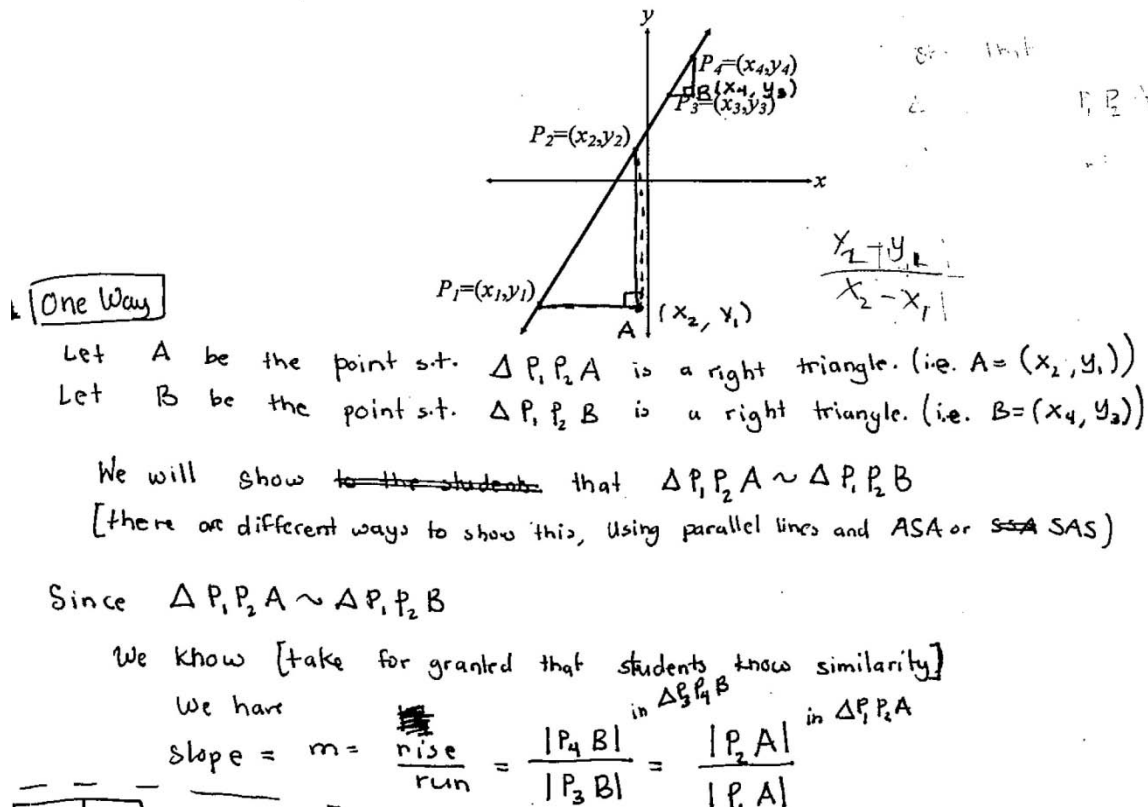 y
P₄=(x₄,y₄)
B(x₄, y₃)
P₃=(x₃,y₃)
P₂=(x₂,y₂)
x
P₁=(x₁,y₁)
A (x₂, y₁)
P₁ P₂
y₂ - y₁
x₂ - x₁
One Way
Let A be the point s.t. Δ P₁ P₂ A is a right triangle. (i.e. A = (x₂, y₁))
Let B be the point s.t. Δ P₁ P₂ B is a right triangle. (i.e. B=(x₄, y₃))
We will show to the students that Δ P₁ P₂ A ~ Δ P₁ P₂ B
[there are different ways to show this, Using parallel lines and ASA or SSA SAS)
Since Δ P₁ P₂ A ~ Δ P₁ P₂ B
We know [take for granted that students know similarity]
We have
in ΔP₃P₄B in ΔP₁P₂A
slope = m = rise/run = |P₄ B|/|P₃ B| = |P₂ A|/|P₁ A|